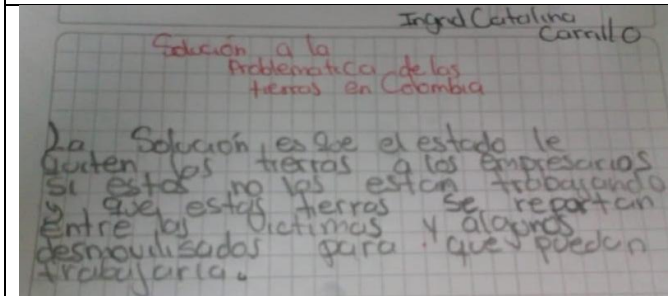 Ingrid Catalina
Carrillo
Solución a la
Problematica de las
tierras en Colombia
La Solución es que el estado le
quiten los tierras a los empresarios
si estos no las estan trabajando
y que estas tierras se reportan
Entre las Victimas y algunos
desmovilisados para que puedan
trabajarla.